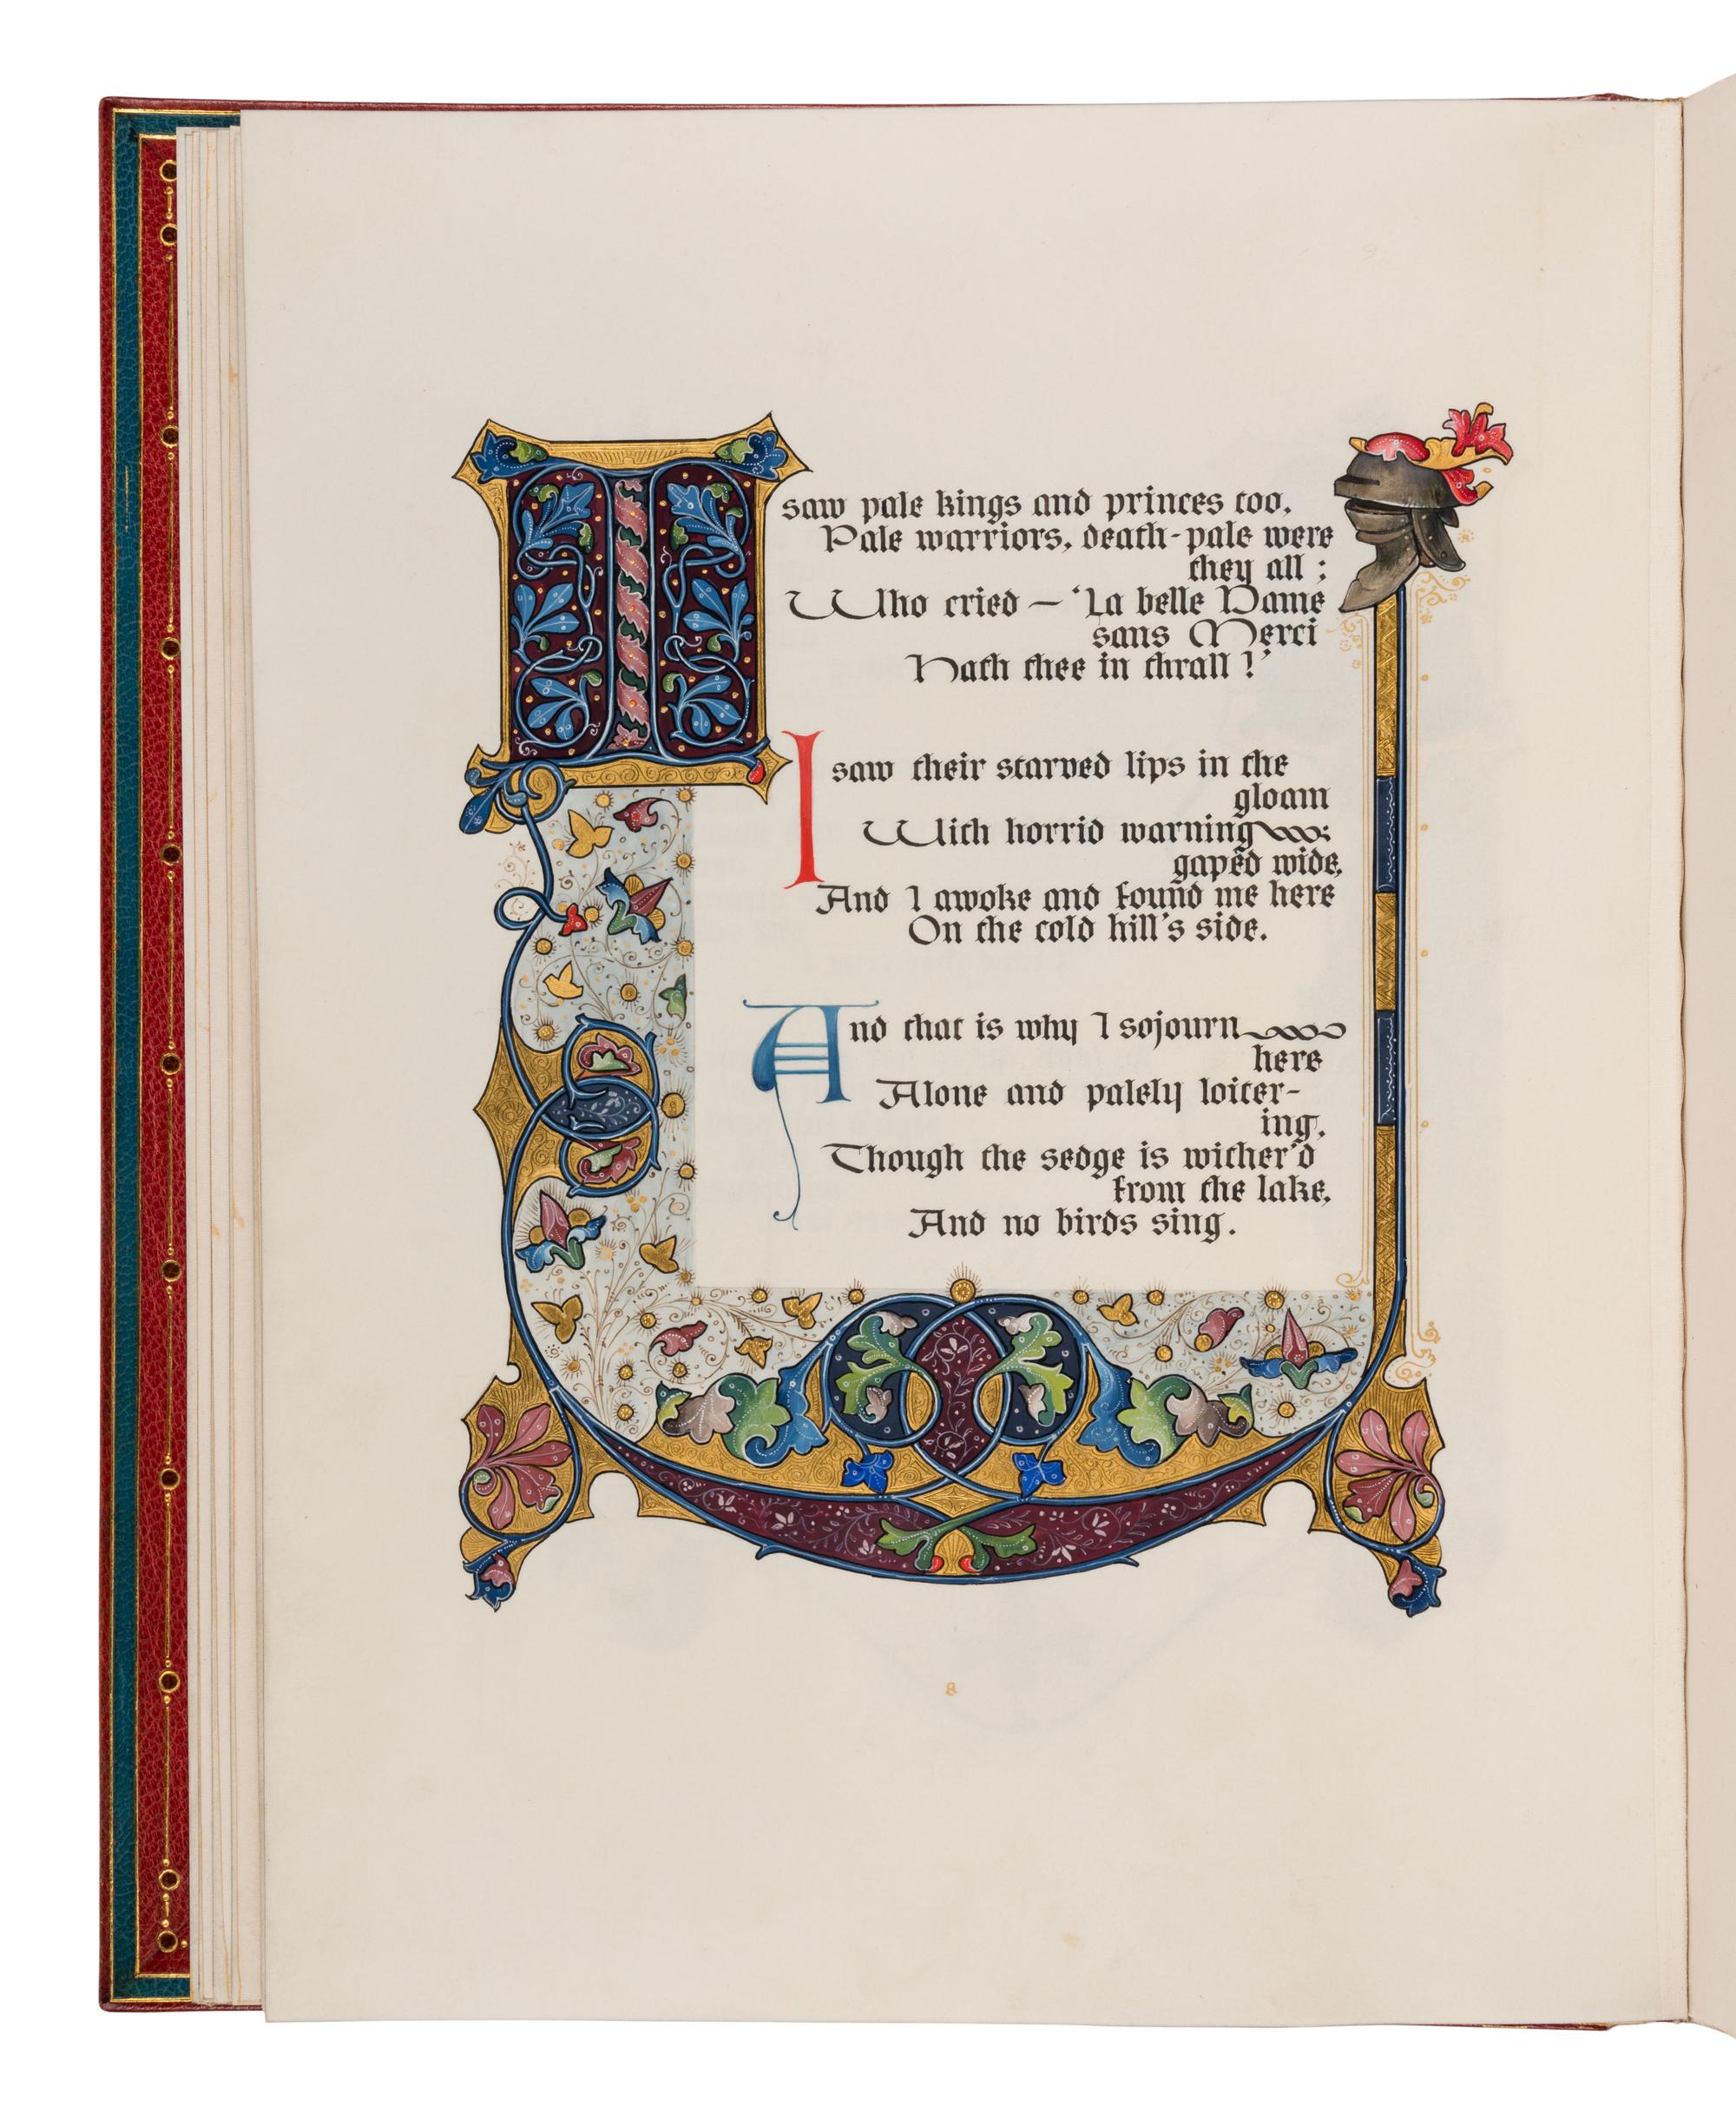 I saw pale kings and princes too,
Pale warriors, death-pale were
they all;
Who cried – 'La belle Dame
sans Merci
Hath thee in thrall!'
I saw their starved lips in the
gloam
With horrid warning
gaped wide,
And I awoke and found me here
On the cold hill's side.
And that is why I sojourn
here
Alone and palely loiter-
ing,
Though the sedge is wither'd
from the lake,
And no birds sing.
8